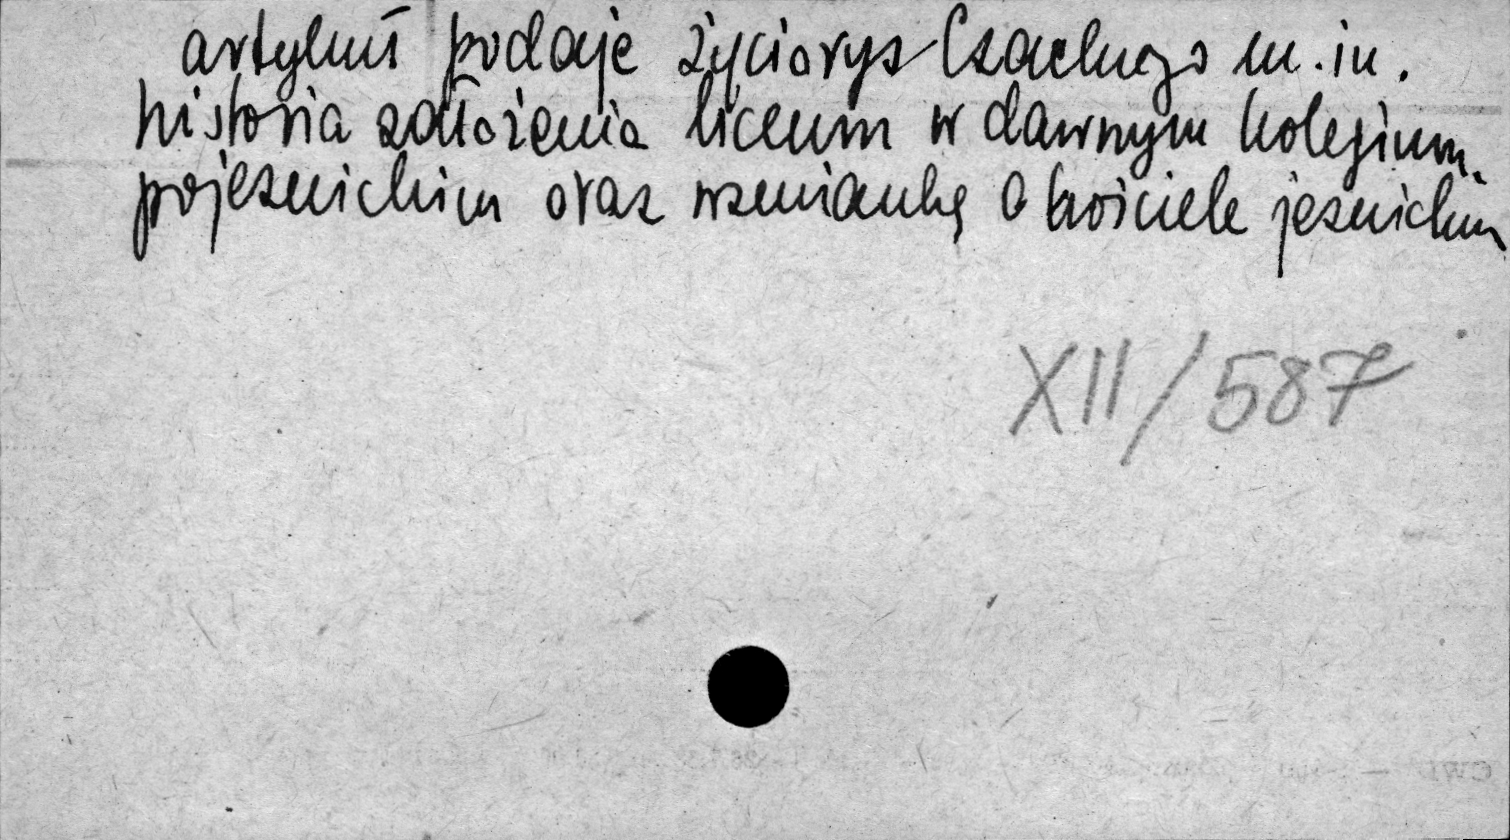 artykuł podaje życiorys Czackiego m.in.
historia założenia liceum w dawnym kolegium
pojezuickim oraz wzmiankę o kościele jezuickim
XII/587